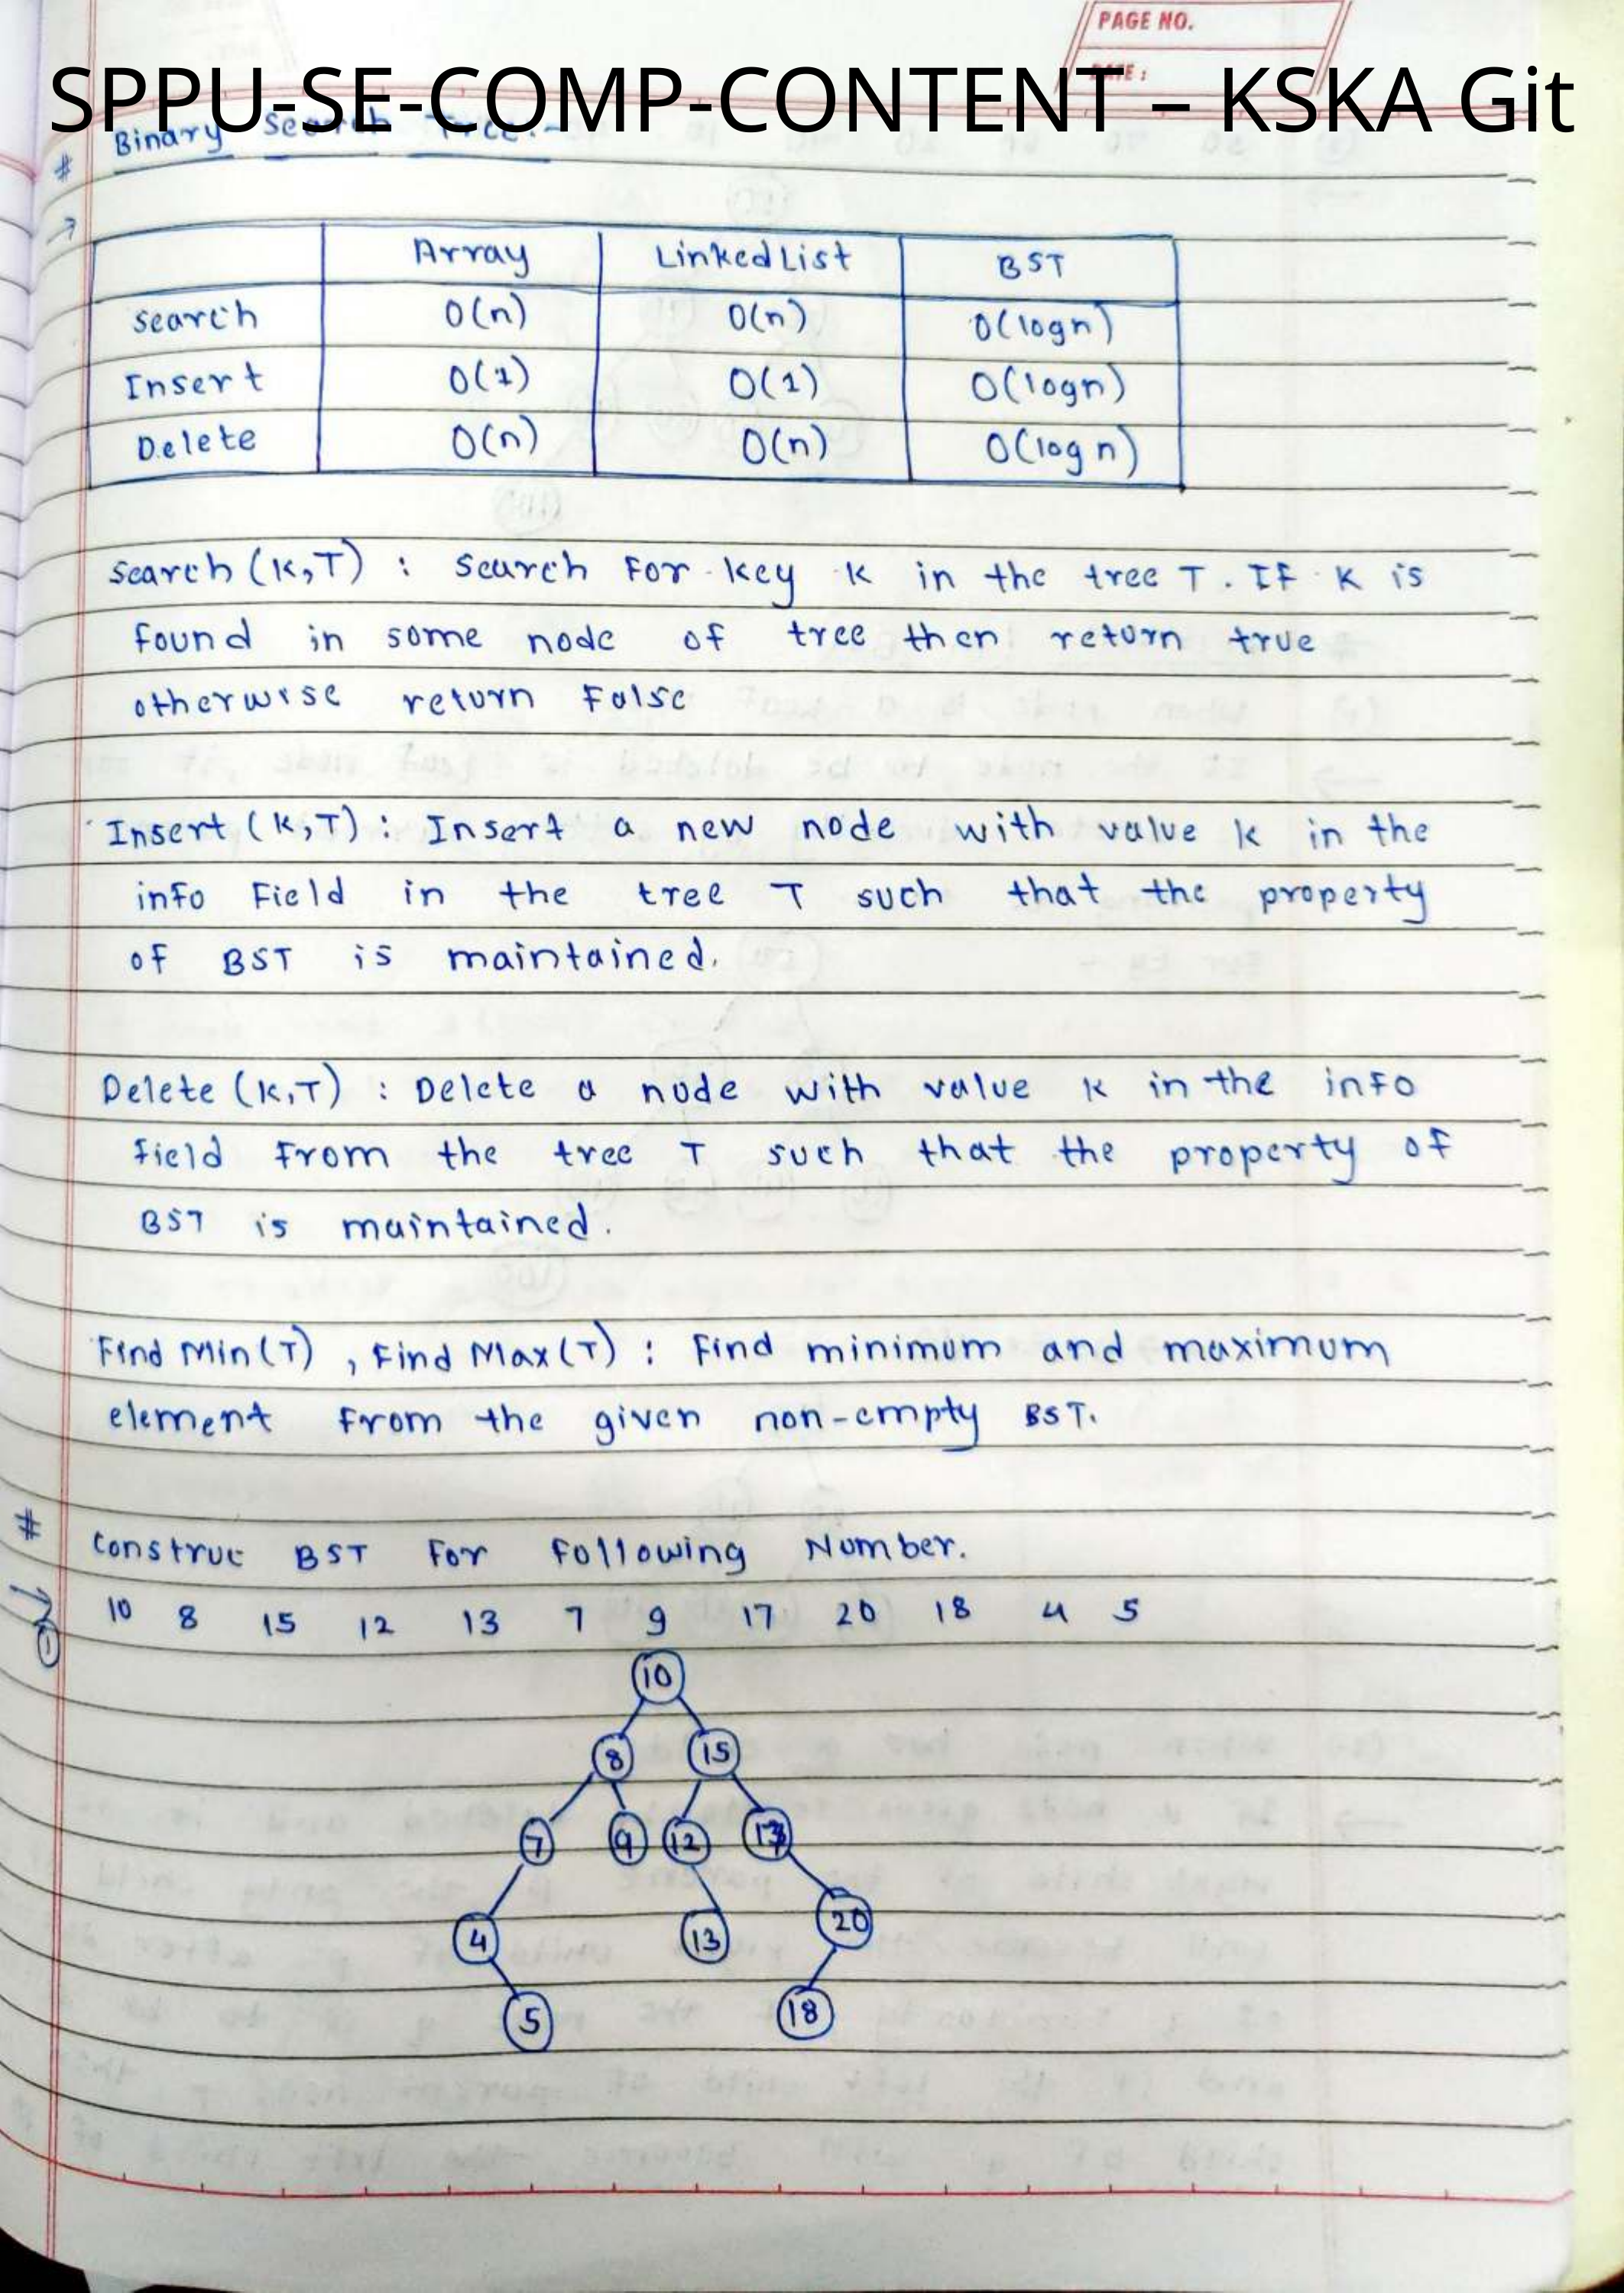 PAGE NO.
DATE :
SPPU-SE-COMP-CONTENT – KSKA Git
# Binary Search Tree:-
→
Array LinkedList BST
Search O(n) O(n) O(logn)
Insert O(1) O(1) O(logn)
Delete O(n) O(n) O(logn)
Search (K,T) : Search For key K in the tree T. IF K is
found in some node of tree then return true
otherwise return False
Insert (K,T) : Insert a new node with value k in the
info Field in the tree T such that the property
of BST is maintained.
Delete (K,T) : Delete a node with value K in the info
field From the tree T such that the property of
BST is maintained.
Find Min(T) , Find Max(T) : Find minimum and maximum
element From the given non-empty BST.
# Construc BST For Following Number.
10 8 15 12 13 7 9 17 20 18 4 5
10
8 15
7 9 12 17
4 13 20
5 18